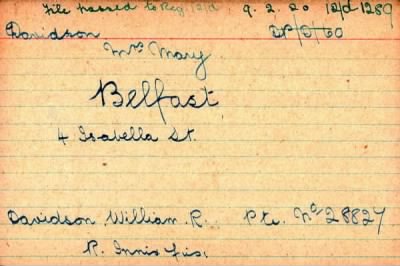 File passed to Reg. 12/d 9. 2. 20 12/d 1289
Davidson DP/O/60
Mrs Mary
Belfast
4 Isabella St.
Davidson William R. Pte. No 28827
R. Innis Fus.